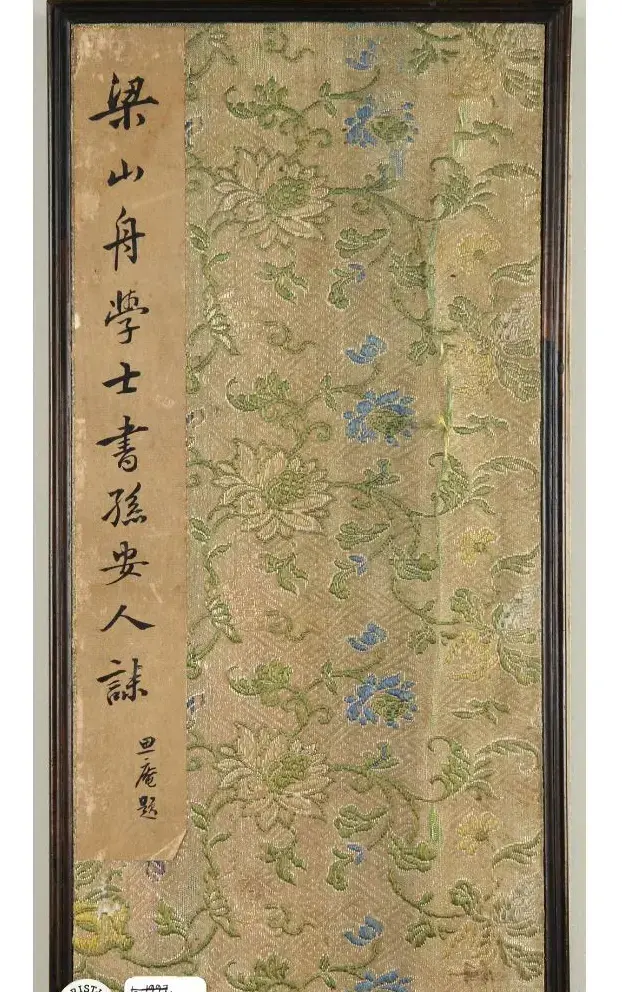 梁山舟學士書孫安人誄
庵題
1997.